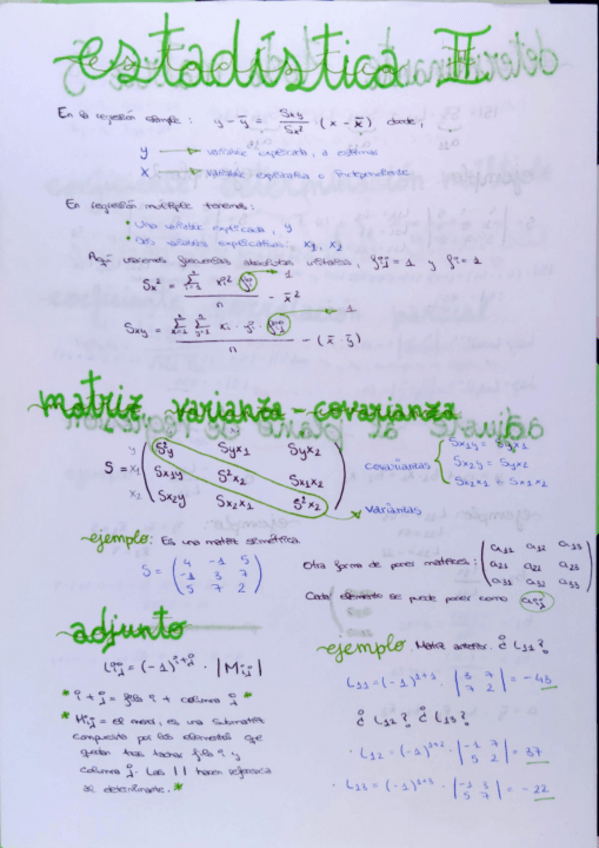 estadística II
En la regresión simple: y - ȳ = Sxy / Sx² · (x - x̄) donde,
y → variable explicada, a estimar
x → variable explicativa o independiente
En regresión múltiple tenemos:
* Una variable explicada, y
* Dos variables explicativas: x₁, x₂
Aquí usaremos frecuencias absolutas unitarias, fij = 1 y fi = 1
Sx² = Σ xi² · fi → 1 / n - x̄²
Sxy = Σ Σ xi · yj · fij → 1 / n - (x̄ · ȳ)
matriz varianza - covarianza
y S²y Syx₁ Syx₂
S = x₁ Sx₁y S²x₂ Sx₁x₂
x₂ Sx₂y Sx₂x₁ S²x₂
covarianzas { Sx₁y = Syx₁
Sx₂y = Syx₂
Sx₂x₁ = Sx₁x₂
→ varianzas
ejemplo: Es una matriz simétrica
S = ( 4 -1 5
-1 3 7
5 7 2 )
Otra forma de poner matrices: ( a₁₁ a₁₂ a₁₃
a₂₁ a₂₂ a₂₃
a₃₁ a₃₂ a₃₃ )
Cada elemento se puede poner como aij
adjunto
Lij = (-1)^i+j · |Mij|
* i + j = fila i + columna j *
* Mij = el menor, es una submatriz
compuesta por los elementos que
quedan tras tachar fila i y
columna j. Las | | hacen referencia
al determinante. *
ejemplo. Matriz anterior. ¿L₁₁?
L₁₁ = (-1)¹⁺¹ · | 3 7 / 7 2 | = -43
¿L₁₂? ¿L₁₃?
· L₁₂ = (-1)¹⁺² · | -1 7 / 5 2 | = 37
· L₁₃ = (-1)¹⁺³ · | -1 3 / 5 7 | = -22